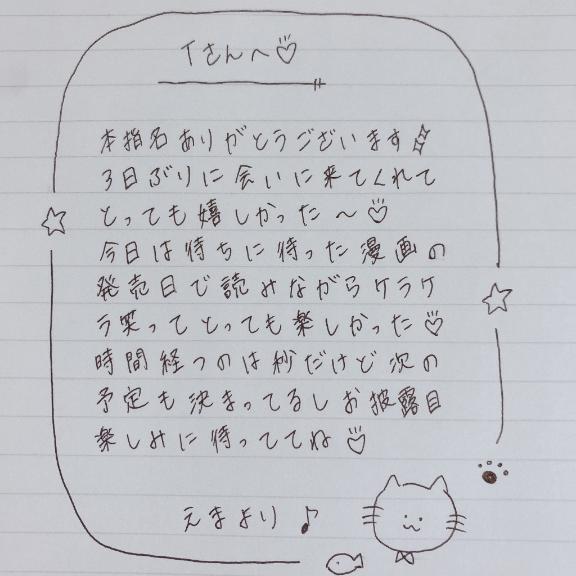 Tさんへ♡
本指名ありがとうございます
3日ぶりに会いに来てくれて
とっても嬉しかった〜♡
今日は待ちに待った漫画の
発売日で読みながらケラケ
ラ笑ってとっても楽しかった♡
時間経つのは秒だけど次の
予定も決まってるしお披露目
楽しみに待っててね♡
えまより♪